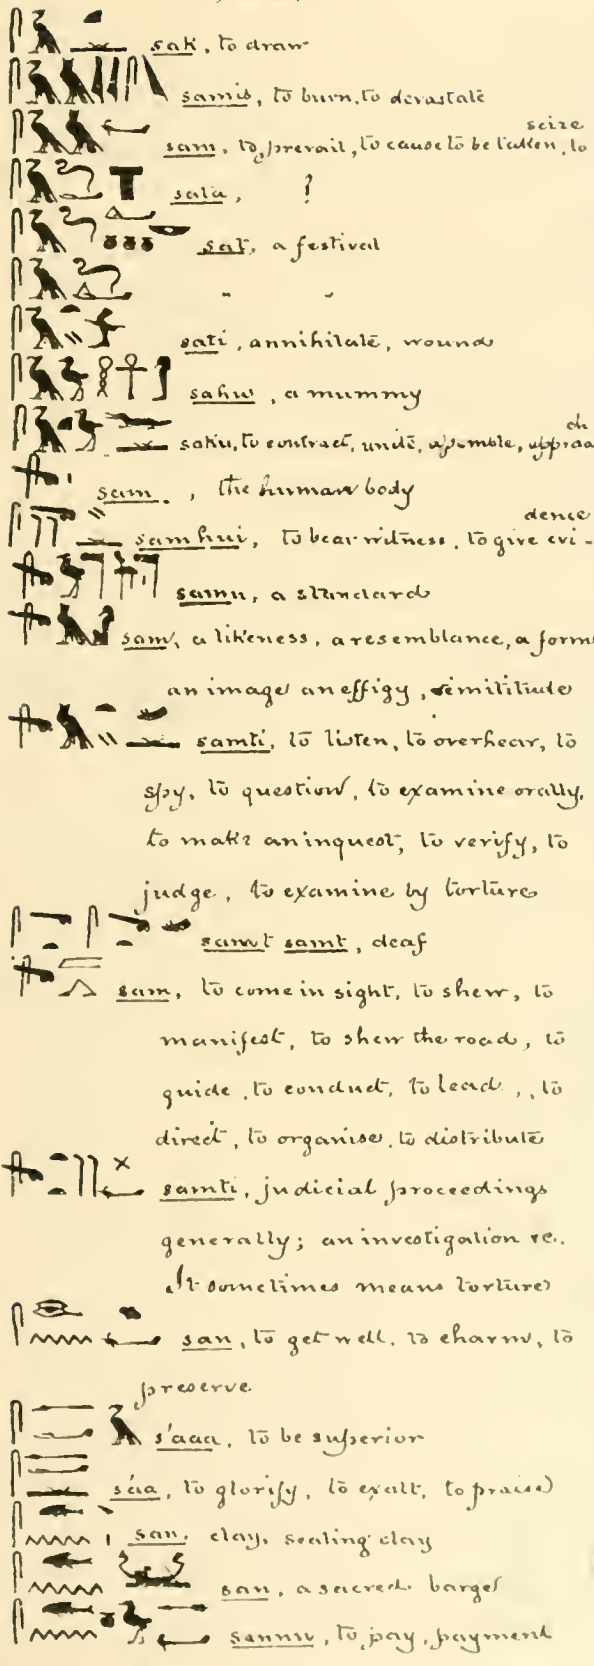 sak, to draw
samis, to burn, to devastate
seize
sam, to, prevail, to cause to be taken, to
sata, ?
sat, a festival
" "
sati, annihilate, wound
sahu, a mummy
ch
saku, to contract, unite, assemble, approa
sam., the human body
dence
samhui, to bear witness, to give evi-
samu, a standard
sam, a likeness, a resemblance, a form
an image an effigy, similitude
samti, to listen, to overhear, to
spy, to question, to examine orally,
to make an inquest, to verify, to
judge, to examine by torture
samt samt, deaf
sam, to come in sight, to shew, to
manifest, to shew the road, to
guide, to conduct, to lead, to
direct, to organise, to distribute
samti, judicial proceedings
generally; an investigation &c.
It sometimes means torture
san, to get well, to charm, to
preserve
s'aaa, to be superior
sáa, to glorify, to exalt, to praise
san, clay, sealing clay
san, a sacred barge
sannu, to pay, payment